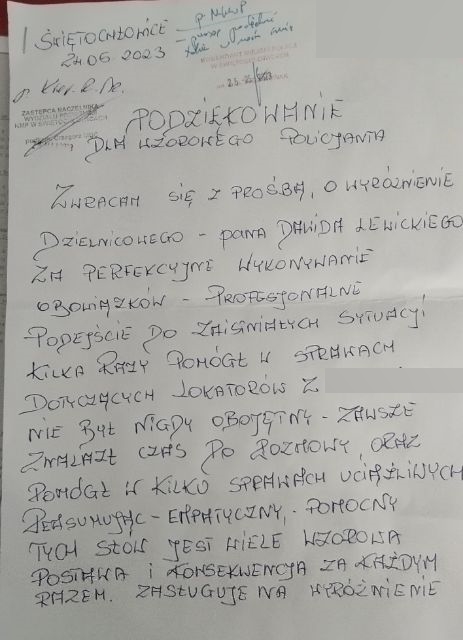 ŚWIĘTOCHŁOWICE
24.05.2023
p. NWRP
KOMENDANT MIEJSKI POLICJI
W ŚWIĘTOCHŁOWICACH
ZASTĘPCA NACZELNIKA
WYDZIAŁU
KMP W ŚWIĘTOCHŁOWICACH
PODZIĘKOWANIE
DLA WZOROWEGO POLICJANTA
ZWRACAM SIĘ Z PROŚBĄ, O WYRÓŻNIENIE
DZIELNICOWEGO - PANA DAWIDA LEWICKIEGO
ZA PERFEKCYJNE WYKONYWANIE
OBOWIĄZKÓW - PROFESJONALNE
PODEJŚCIE DO ZAISNIAŁYCH SYTUACJI
KILKA RAZY POMÓGŁ W SPRAWACH
DOTYCZĄCYCH LOKATORÓW Z
NIE BYŁ NIGDY OBOJĘTNY - ZAWSZE
ZNALAZŁ CZAS DO ROZMOWY, ORAZ
POMÓGŁ W KILKU SPRAWACH UCIĄŻLIWYCH
REASUMUJĄC - EMPATYCZNY, POMOCNY
TYCH SŁÓW JEST WIELE WZOROWA
POSTAWA I KONSEKWENCJA ZA KAŻDYM
RAZEM. ZASŁUGUJE NA WYRÓŻNIENIE